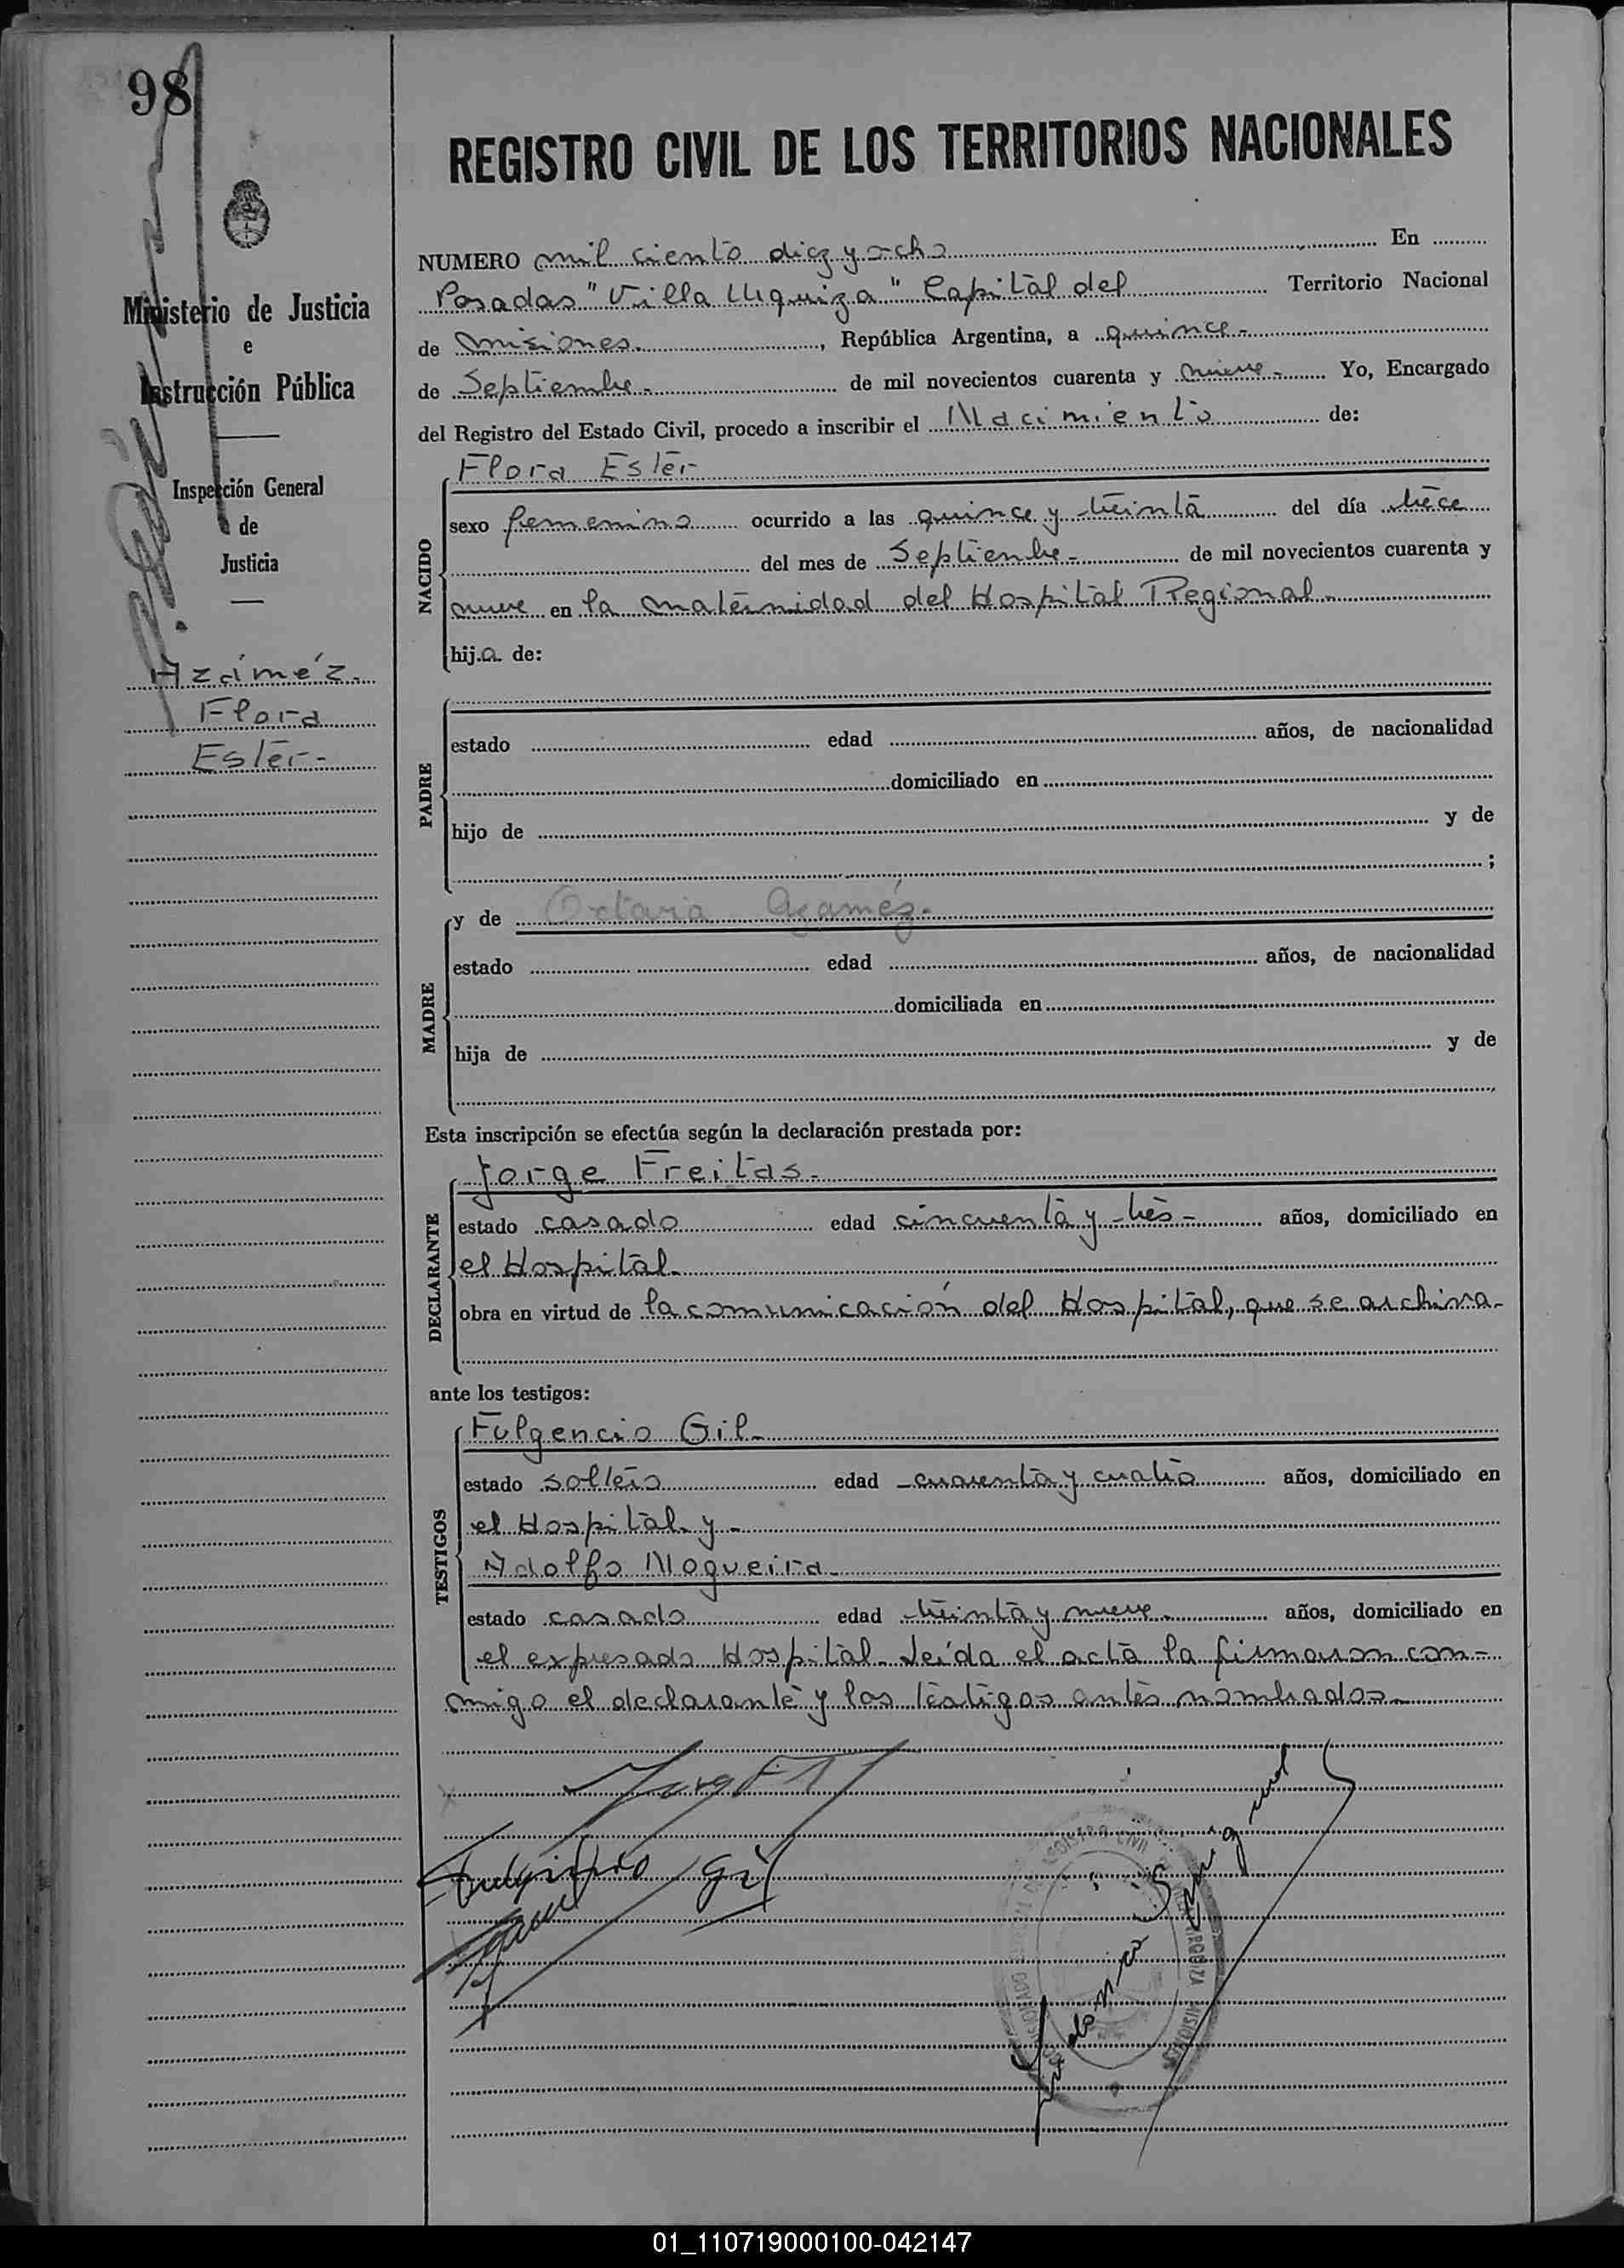 98
Ministerio de Justicia
e
Instrucción Pública
Inspección General
de
Justicia
Azáméz.
Flora
Ester-
REGISTRO CIVIL DE LOS TERRITORIOS NACIONALES
NUMERO mil ciento diez y ocho En
Posadas "Villa Urquiza" Capital del Territorio Nacional
de Misiones. , República Argentina, a quince-
de Septiembre- de mil novecientos cuarenta y nueve- Yo, Encargado
del Registro del Estado Civil, procedo a inscribir el Nacimiento de:
Flora Ester
NACIDO
sexo femenino ocurrido a las quince y treinta del día trece
del mes de Septiembre- de mil novecientos cuarenta y
nueve en la maternidad del Hospital Regional-
hija de:
PADRE
estado edad años, de nacionalidad
domiciliado en
hijo de y de
;
MADRE
y de Octavia Azaméz.
estado edad años, de nacionalidad
domiciliada en
hija de y de
Esta inscripción se efectúa según la declaración prestada por:
DECLARANTE
Jorge Freitas-
estado casado edad cincuenta y tres- años, domiciliado en
el Hospital-
obra en virtud de la comunicación del Hospital, que se archiva-
ante los testigos:
TESTIGOS
Fulgencio Gil-
estado soltero edad cuarenta y cuatro años, domiciliado en
el Hospital y-
Adolfo Nogueira-
estado casado edad treinta y nueve- años, domiciliado en
el expresado Hospital- Leída el acta la firmaron con-
migo el declarante y los testigos antes nombrados-
Fulgencio Gil
REGISTRO CIVIL
URQUIZA MISIONES
01_110719000100-042147